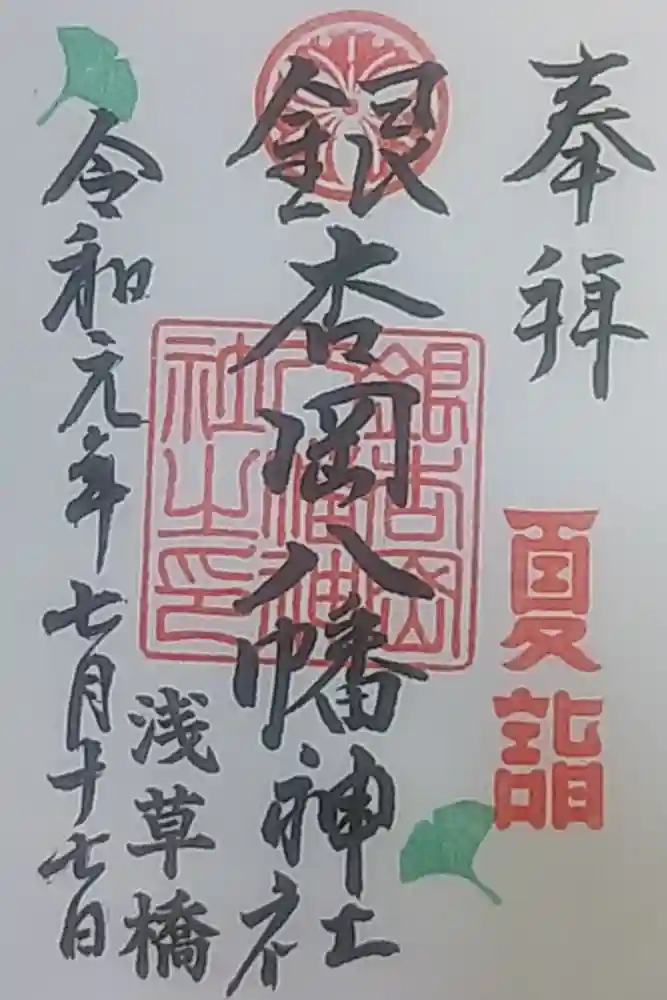 奉拝
夏詣
銀杏岡八幡神社
銀杏岡
八幡神
社之印
浅草橋
令和元年七月十七日